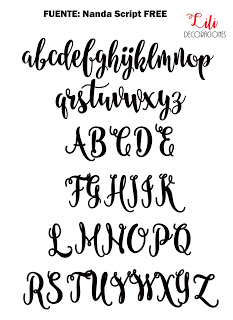 FUENTE: Nanda Script FREE
Lili
DECORACIONES
abcdefghijklmnop
qrstuvwxyz
ABCDE
FGHIJK
LMNOPQ
RSTUVWXYZ